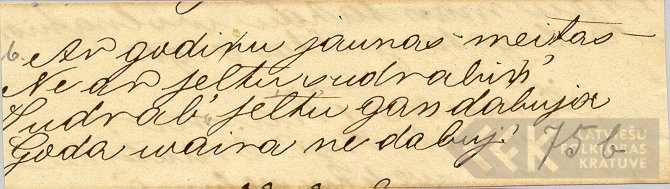 6. Ar godiņu jaunas meitas
Ne ar seltu sudrabiņ'
Sudrab' seltu gan dabuja
Goda waira ne dabuj' 756
LATVIEŠU
FOLKLORAS
KRATUVE